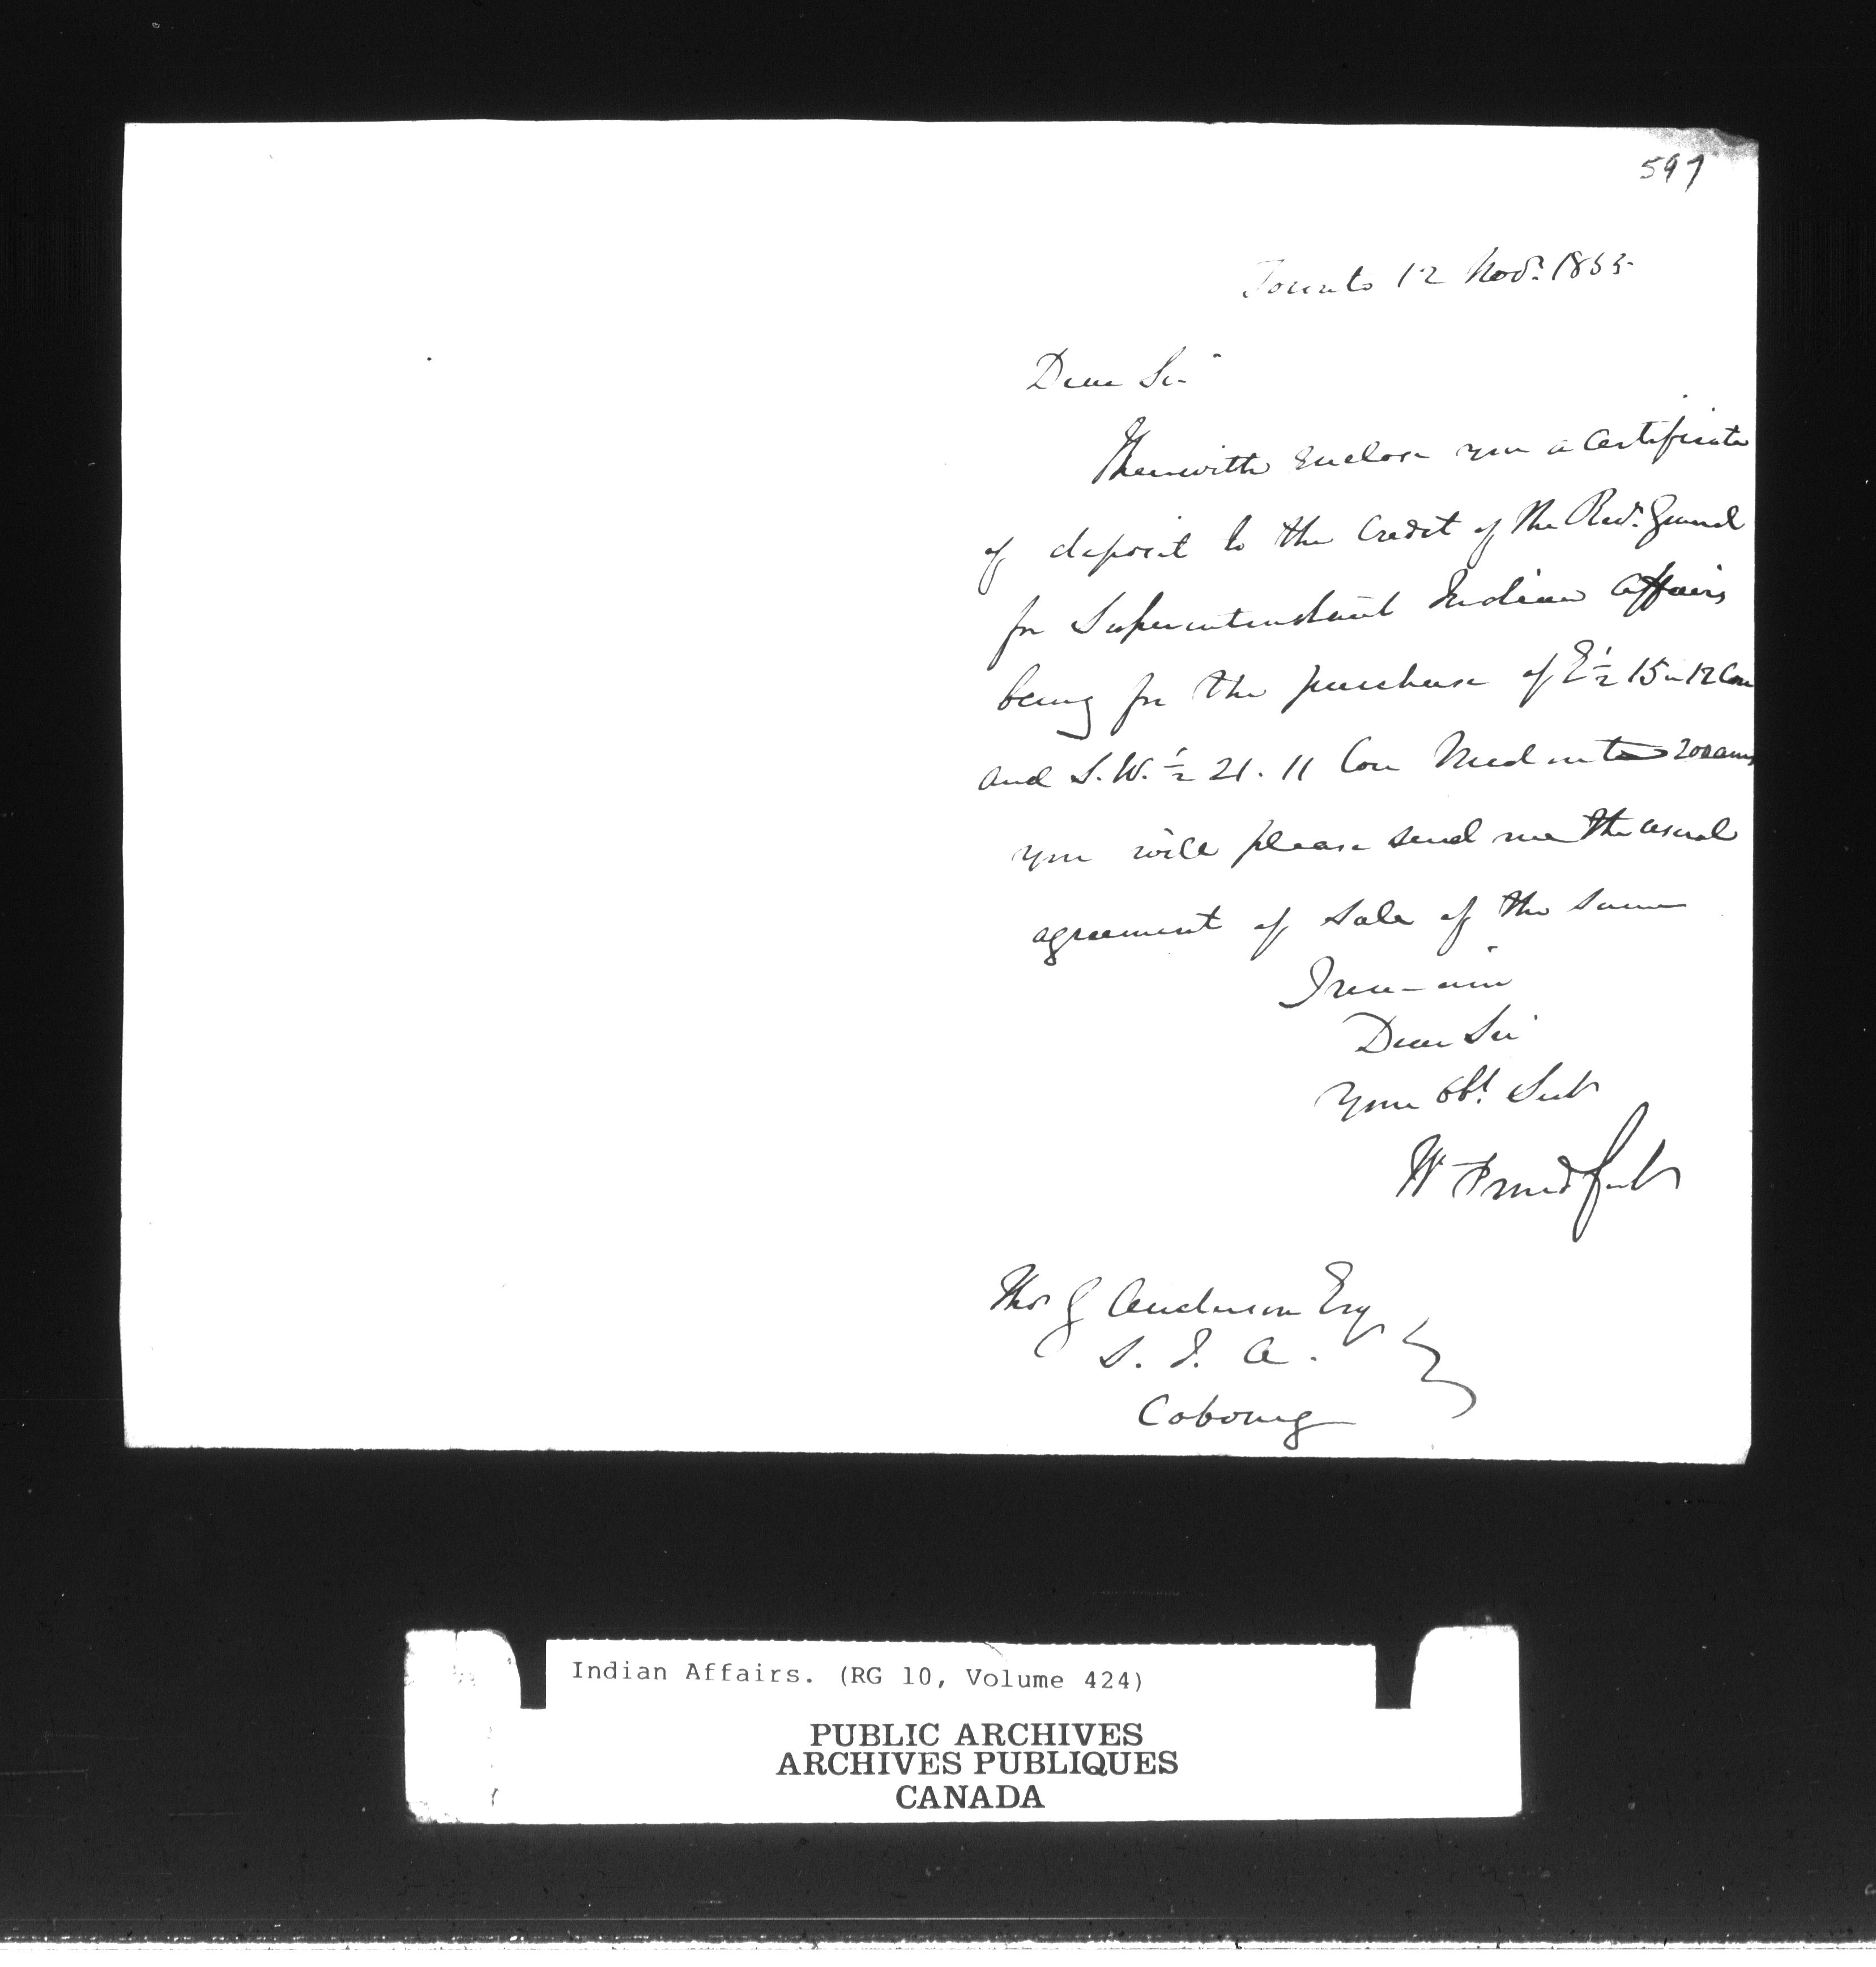 597
Toronto 12 Novr. 1855.
Dear Sir
I herewith enclose you a Certificate
of deposit to the Credit of the Recr. General
for Superintendant Indian Affairs
being for the purchase of E ½ 15 in 12 Con
and S.W. ½ 21. 11 Con 200 acres
you will please send me the usual
agreement of Sale of the same
I remain
Dear Sir
Your obt. Servt
W
Thos G Anderson Esqr
S. I. A.
Cobourg
Indian Affairs. (RG 10, Volume 424)
PUBLIC ARCHIVES
ARCHIVES PUBLIQUES
CANADA